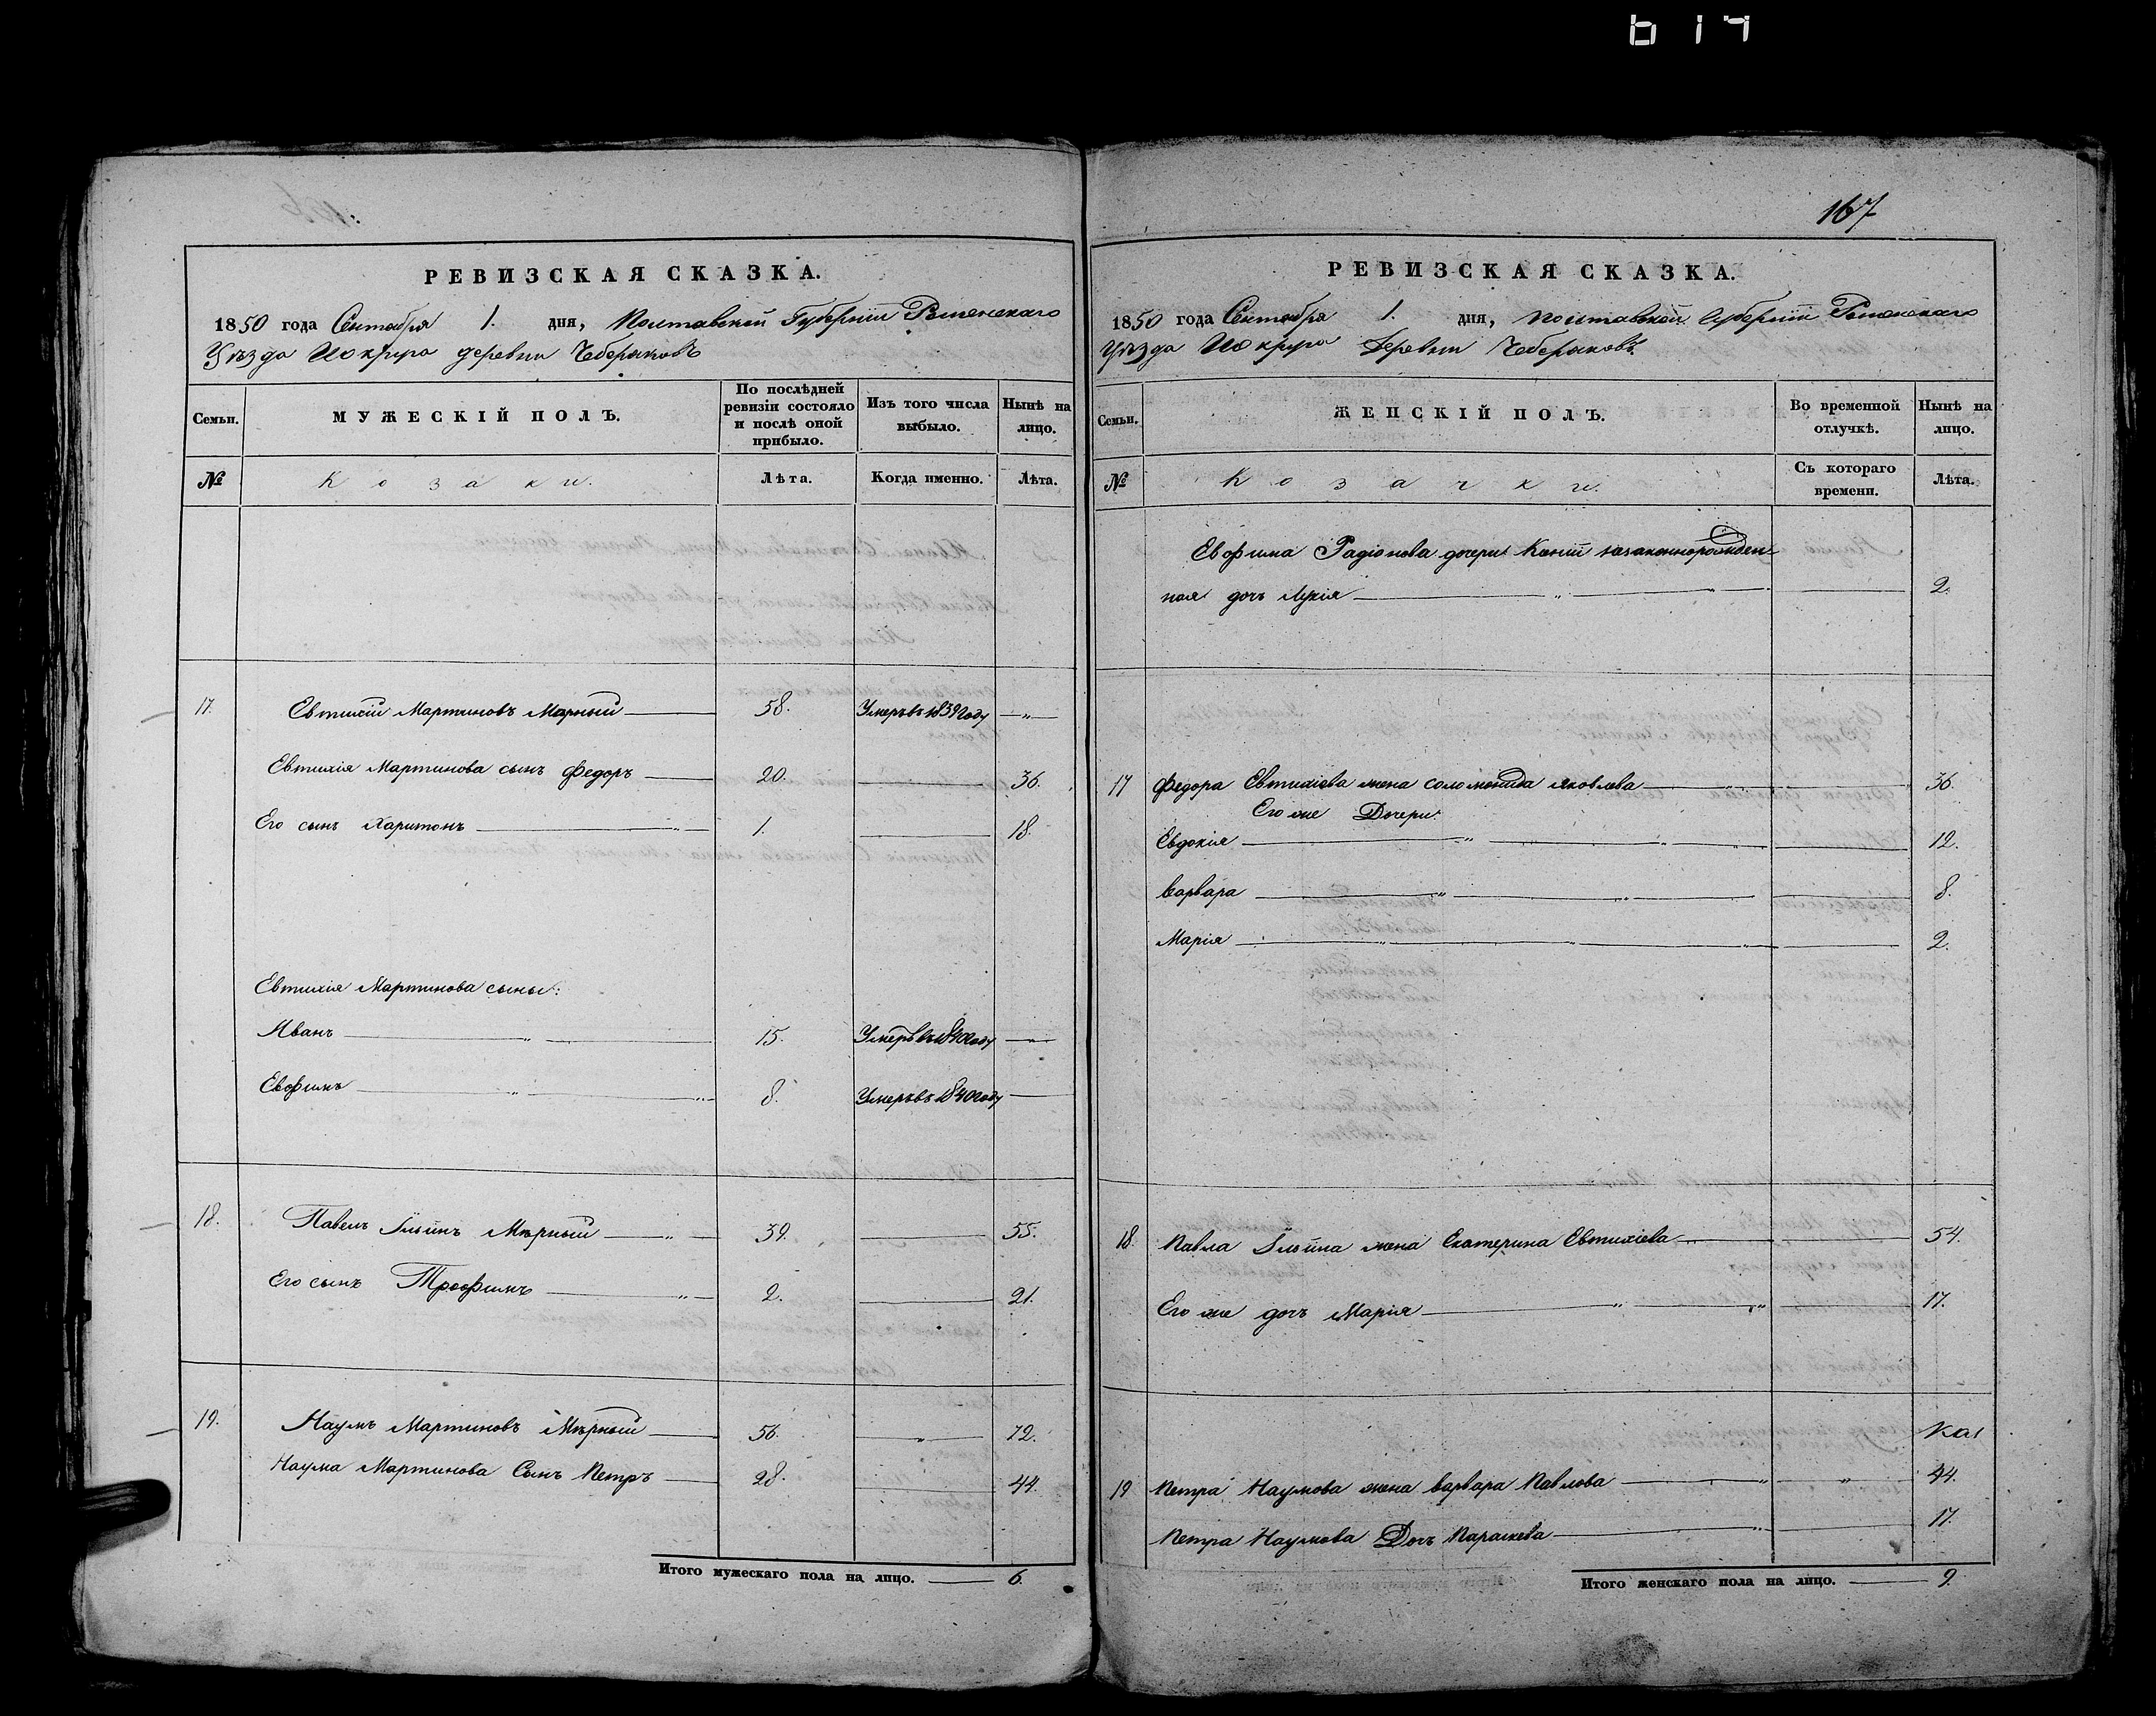 167
РЕВИЗСКАЯ СКАЗКА.
1850 года Сентября 1. дня, Полтавской Губерніи Роменскаго
Уѣзда деревни Чеберяковъ
Семьи. МУЖЕСКІЙ ПОЛЪ. По послѣдней ревизіи состояло и послѣ оной прибыло. Изъ того числа выбыло. Нынѣ на лицо.
№ Козаки. Лѣта. Когда именно. Лѣта.
17. Евтихій Мартиновъ Мѣрный 58. Умеръ въ 1839 году
Евтихія Мартинова сынъ Федоръ 20. 36.
Его сынъ Харитонъ 1. 18.
Евтихія Мартинова сыны:
Иванъ 15. Умеръ въ 1840 году
Евфимъ 8. Умеръ въ 1840 году
18. Павелъ Ильинъ Мѣрный 39. 55.
Его сынъ Трофимъ 2. 21.
19. Наумъ Мартиновъ Мѣрный 56. 72.
Наума Мартинова Сынъ Петръ 28. 44.
Итого мужескаго пола на лицо. 6.
РЕВИЗСКАЯ СКАЗКА.
1850 года Сентября 1. дня, Полтавской Губерніи Роменскаго
Уѣзда Деревни Чеберяковъ
Семьи. ЖЕНСКІЙ ПОЛЪ. Во временной отлучкѣ. Нынѣ на лицо.
№ Козачки. Съ котораго времени. Лѣта.
Евфима Радіонова дочери незаконнорожден-
ная дочь Лукія 2.
17 Федора Евтихіева жена Соломонида Яковлева 36.
Его же Дочери:
Евдокія 12.
Варвара 8.
Марія 2.
18. Павла Ильина жена Екатерина Евтихіева 54.
Его же дочь Марія 17.
19 Петра Наумова жена Варвара Павлова 44.
Петра Наумова Дочь Параскева 17.
Итого женскаго пола на лицо. 9.